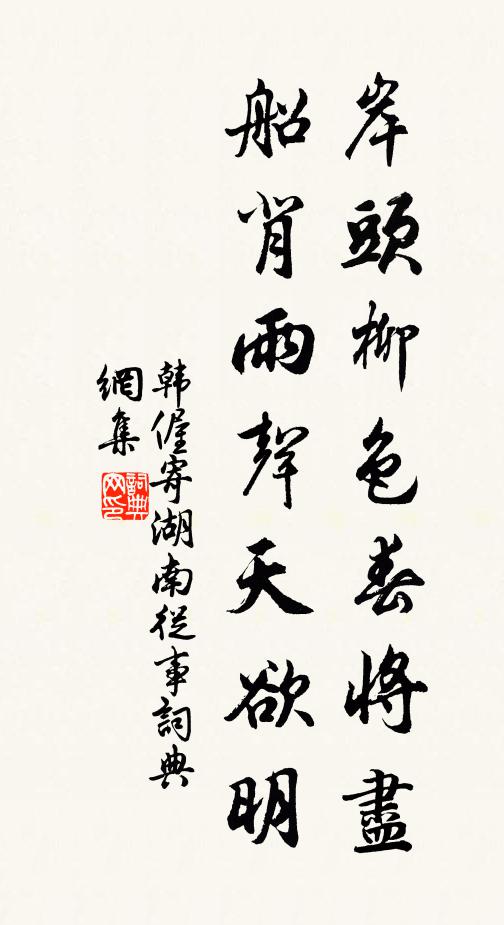 岸頭柳色春將盡
船背雨聲天欲明
韩偓寄湖南從事詞典
網集
詞典
网印